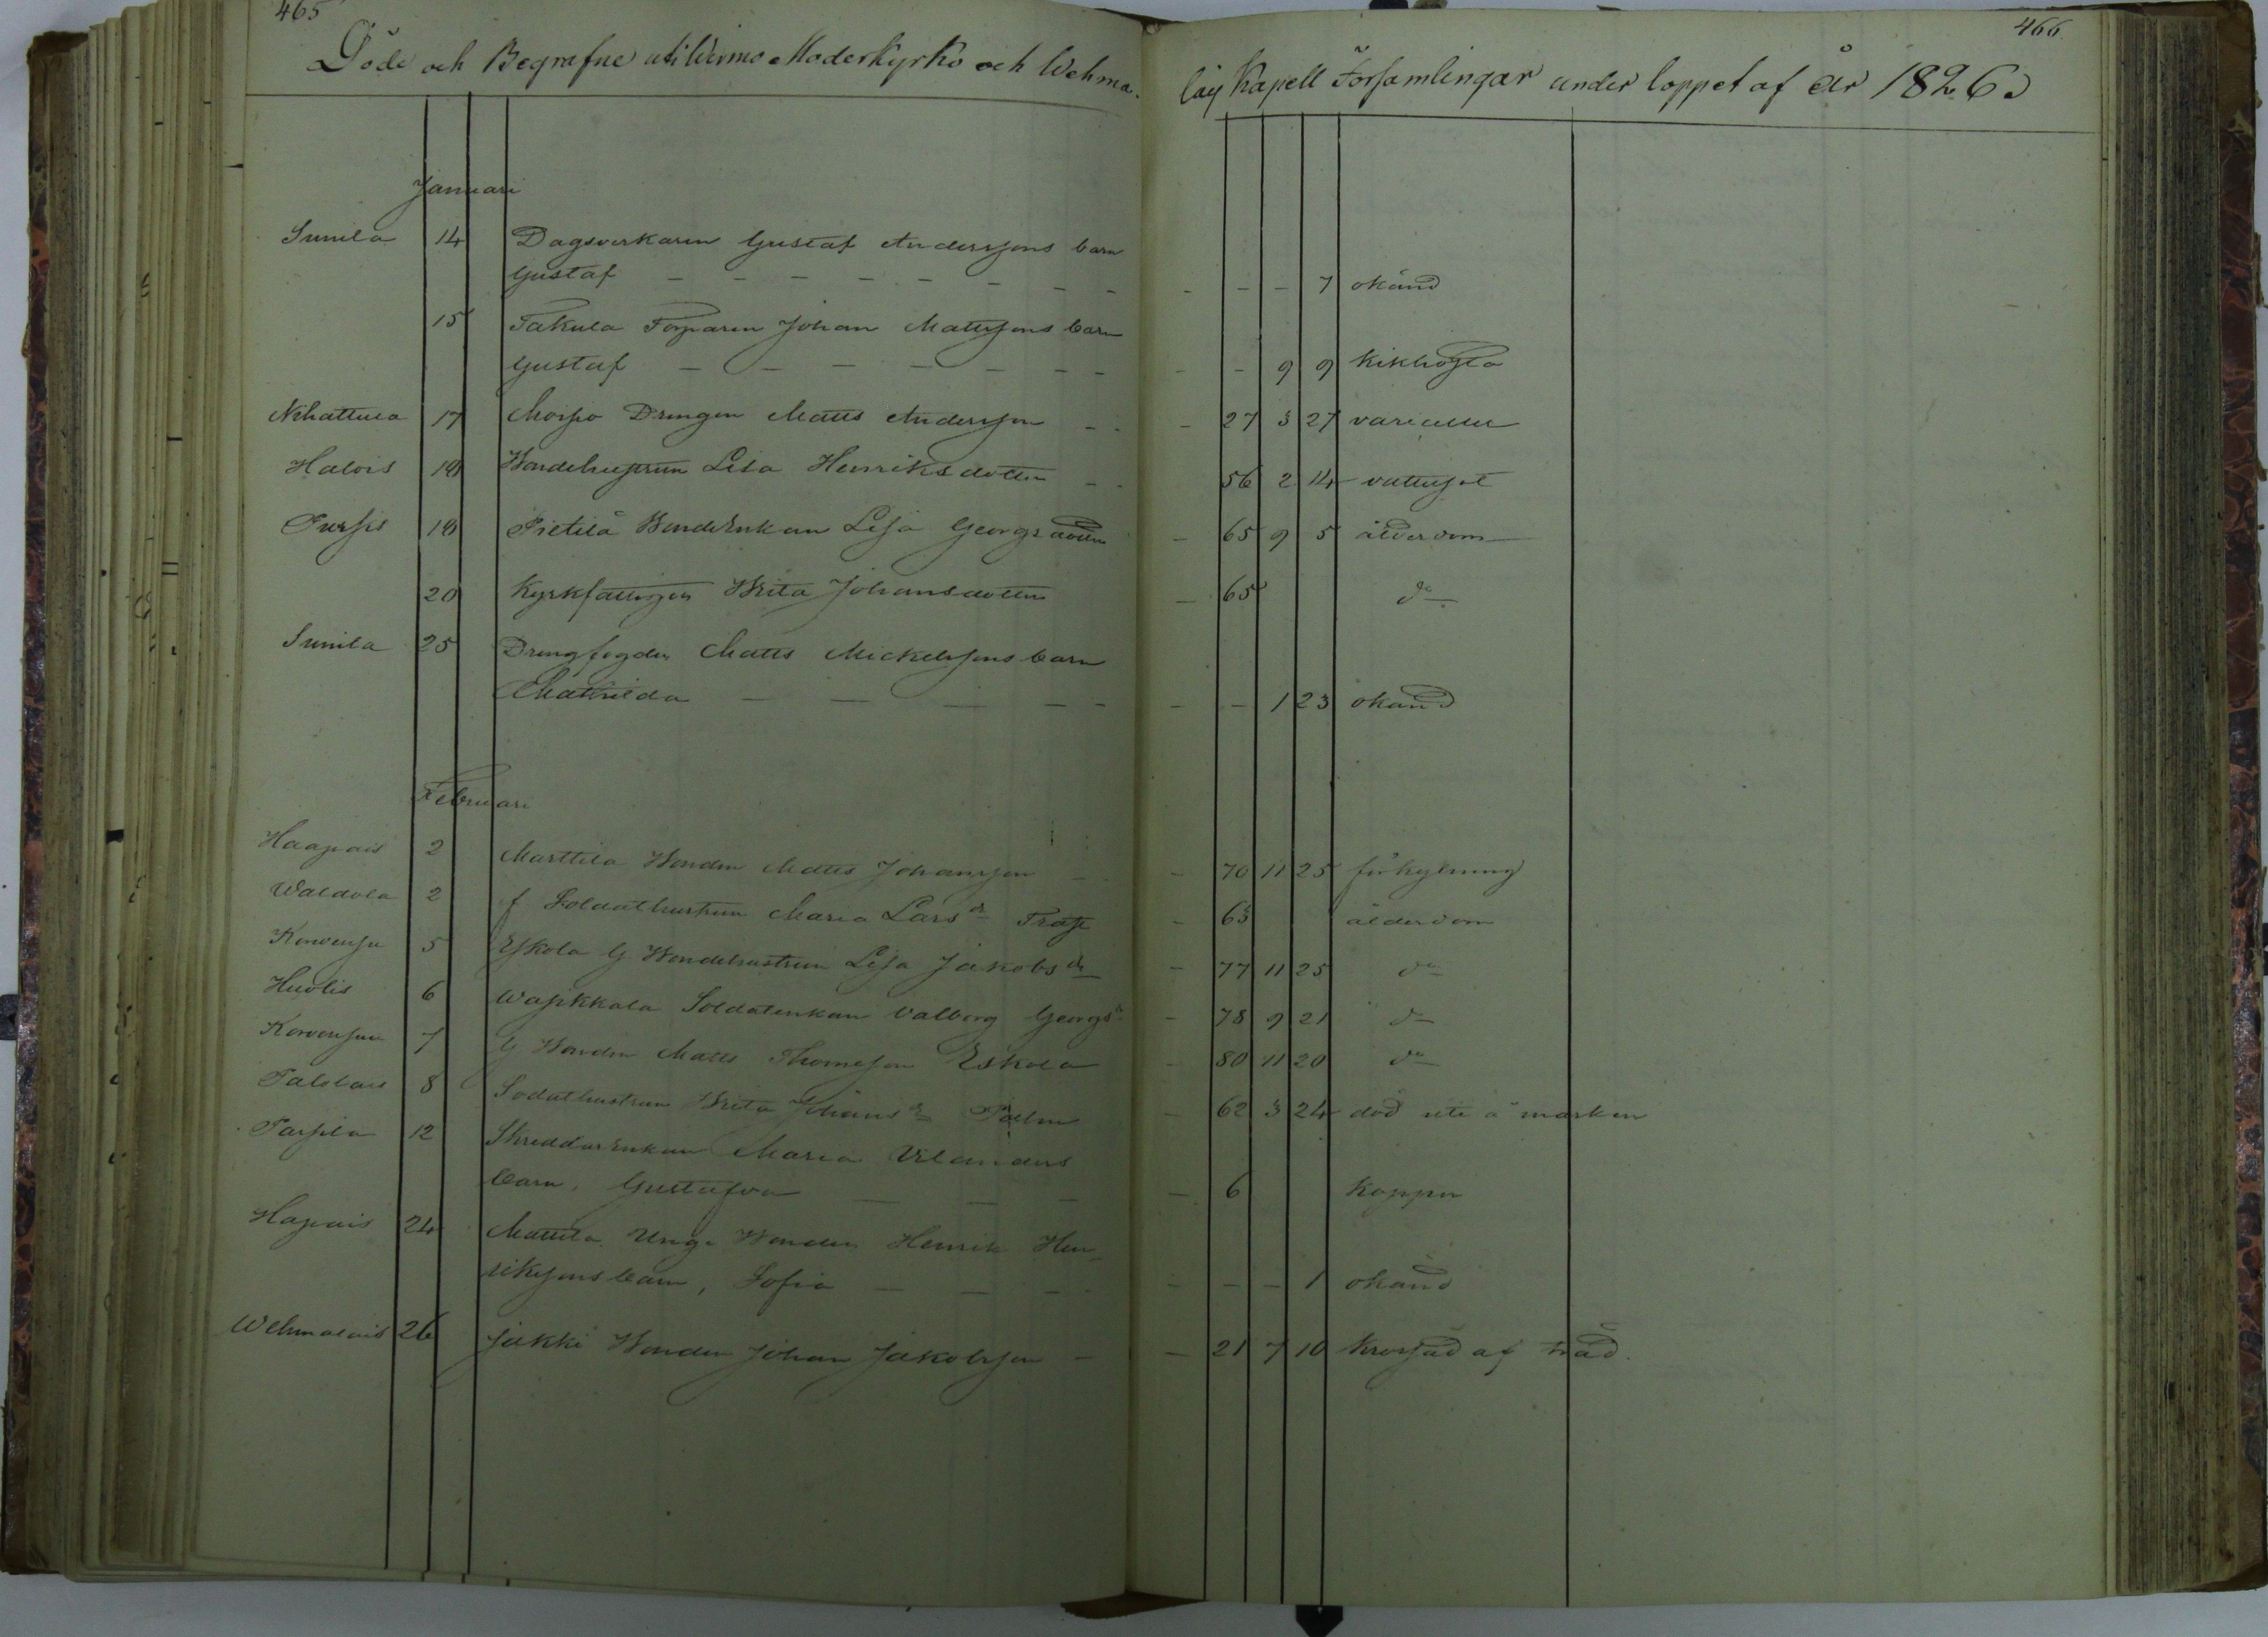 465
466
Döde och Begrafne uti Wirmo Moderkyrko och Wehma-
lax Kapell Församlingar under loppet af År 1826
Januari
Sunila 14 Dagsverkaren Gustaf Anderssons barn
Gustaf — — — 7 okänd
15 Takula Torparen Johan Mattssons barn
Gustaf — — — 9 9 kikhosta
Nihattula 17 Moisio Drengen Matts Andersson 27 3 27
Halois 18 Bondehustrun Lisa Henriksdotter 56 2 14 vattusot
Pursis 18 Pietilä Bondenkan Lisa Georgsdotter 65 9 5 ålderdom
20 Kyrkfattigen Brita Johansdotter 65 do
Sunila 25 Drengfogden Matts Mickelssons barn
Mathilda — — — 1 23 okänd
Februari
Haapais 2 Marttila Bonden Matts Johansson 70 11 25 förkylning
Waldola 2 f. Soldathustrun Maria Larsdr Trast 63 ålderdom
5 Eskola G. Bondehustrun Lisa Jakobsdr 77 11 25 do
Huolis 6 Soldatenkan Valborg Georgsdr 78 9 21 do
Korvensuu 7 G Bonden Matts Thomesson Eskola 80 11 20 do
8 Sodathustrun Brita Johansdr Palm 62 3 24 död ute å marken
Parsila 12 Skreddarenkan Maria Vilanders
barn, Gustafva — — — 6 koppor
Hapais 24 Mattila Unge Bonden Henrik Hen-
rikssons barn, Sofia — — — 1 okänd
Wehmalais 26 Jakki Bonden Johan Jakobsson 21 7 10 krossad af träd.